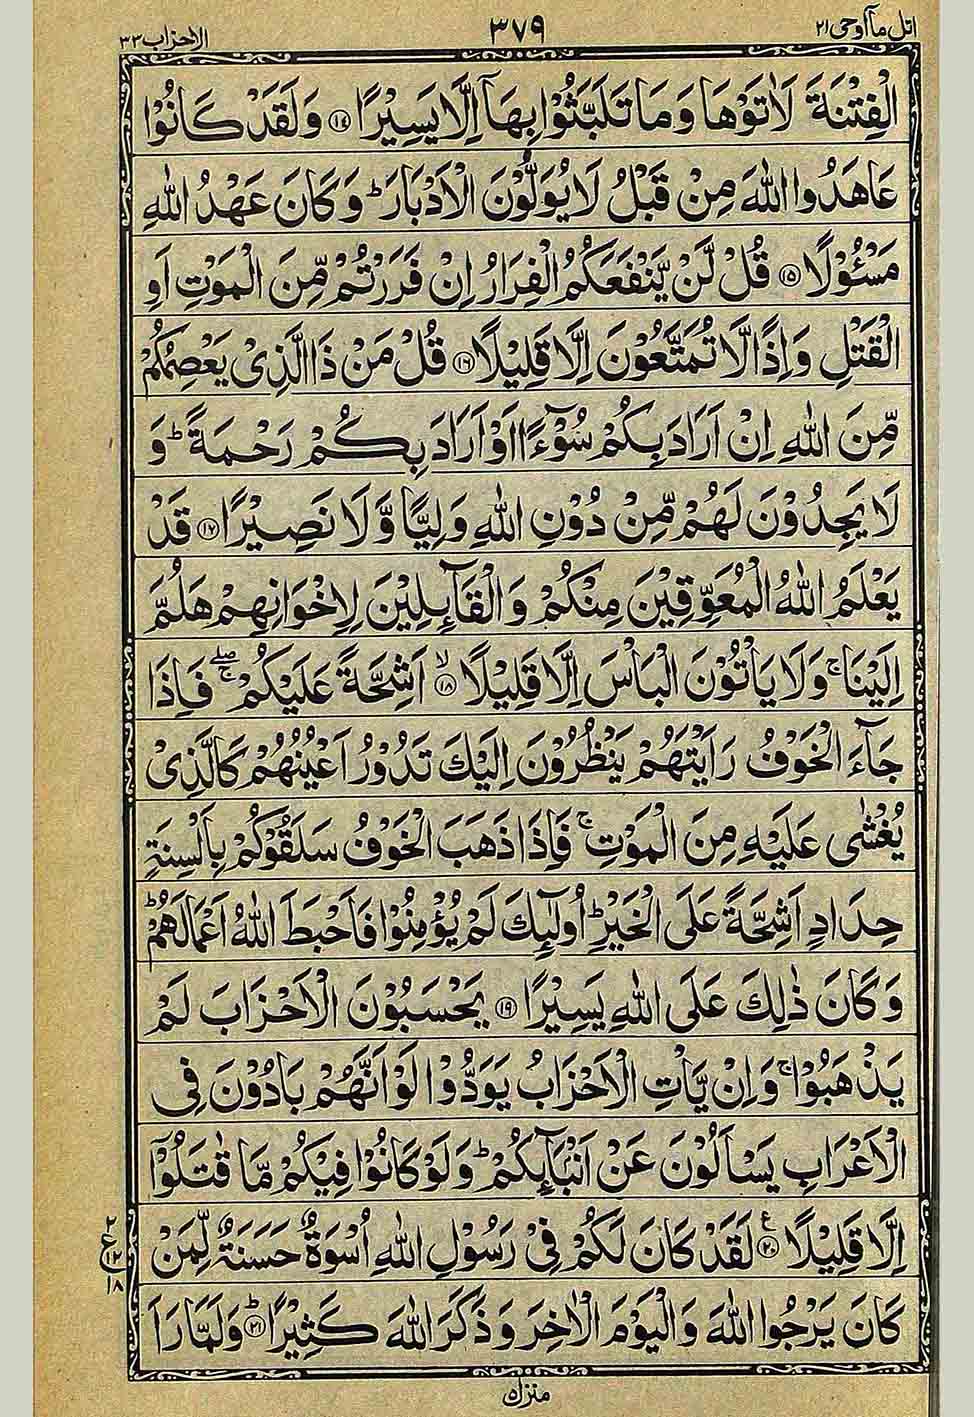 اتل مآ اوحی ۲۱ ۳۷۹ الاحزاب ۳۳
الْفِتْنَةَ لَاٰتَوْهَا وَمَا تَلَبَّثُوْا بِهَاۤ اِلَّا يَسِيْرًا ﴿۱۴﴾ وَلَقَدْ كَانُوْا
عَاهَدُوا اللّٰهَ مِنْ قَبْلُ لَا يُوَلُّوْنَ الْاَدْبَارَ ؕ وَكَانَ عَهْدُ اللّٰهِ
مَسْـُٔوْلًا ﴿۱۵﴾ قُلْ لَّنْ يَّنْفَعَكُمُ الْفِرَارُ اِنْ فَرَرْتُمْ مِّنَ الْمَوْتِ اَوِ
الْقَتْلِ وَاِذًا لَّا تُمَتَّعُوْنَ اِلَّا قَلِيْلًا ﴿۱۶﴾ قُلْ مَنْ ذَا الَّذِىْ يَعْصِمُكُمْ
مِّنَ اللّٰهِ اِنْ اَرَادَ بِكُمْ سُوْٓءًا اَوْ اَرَادَ بِكُمْ رَحْمَةً ؕ وَ
لَا يَجِدُوْنَ لَهُمْ مِّنْ دُوْنِ اللّٰهِ وَلِيًّا وَّلَا نَصِيْرًا ﴿۱۷﴾ قَدْ
يَعْلَمُ اللّٰهُ الْمُعَوِّقِيْنَ مِنْكُمْ وَالْقَآئِلِيْنَ لِاِخْوَانِهِمْ هَلُمَّ
اِلَيْنَا ۚ وَلَا يَاْتُوْنَ الْبَاْسَ اِلَّا قَلِيْلًا ﴿۱۸﴾ ۙ اَشِحَّةً عَلَيْكُمْ ۖۚ فَاِذَا
جَآءَ الْخَوْفُ رَاَيْتَهُمْ يَنْظُرُوْنَ اِلَيْكَ تَدُوْرُ اَعْيُنُهُمْ كَالَّذِىْ
يُغْشٰى عَلَيْهِ مِنَ الْمَوْتِ ۚ فَاِذَا ذَهَبَ الْخَوْفُ سَلَقُوْكُمْ بِاَلْسِنَةٍ
حِدَادٍ اَشِحَّةً عَلَى الْخَيْرِ ؕ اُولٰٓئِكَ لَمْ يُؤْمِنُوْا فَاَحْبَطَ اللّٰهُ اَعْمَالَهُمْ ؕ
وَكَانَ ذٰلِكَ عَلَى اللّٰهِ يَسِيْرًا ﴿۱۹﴾ يَحْسَبُوْنَ الْاَحْزَابَ لَمْ
يَذْهَبُوْا ۚ وَاِنْ يَّاْتِ الْاَحْزَابُ يَوَدُّوْا لَوْ اَنَّهُمْ بَادُوْنَ فِى
الْاَعْرَابِ يَسْاَلُوْنَ عَنْ اَنْۢبَآئِكُمْ ؕ وَلَوْ كَانُوْا فِيْكُمْ مَّا قٰتَلُوْۤا
اِلَّا قَلِيْلًا ﴿۲۰﴾ ع لَقَدْ كَانَ لَكُمْ فِىْ رَسُوْلِ اللّٰهِ اُسْوَةٌ حَسَنَةٌ لِّمَنْ
۲ ع ۱۲ ۱۸
كَانَ يَرْجُوا اللّٰهَ وَالْيَوْمَ الْاٰخِرَ وَذَكَرَ اللّٰهَ كَثِيْرًا ﴿۲۱﴾ ؕ وَلَمَّا رَاَ
منزل ۵